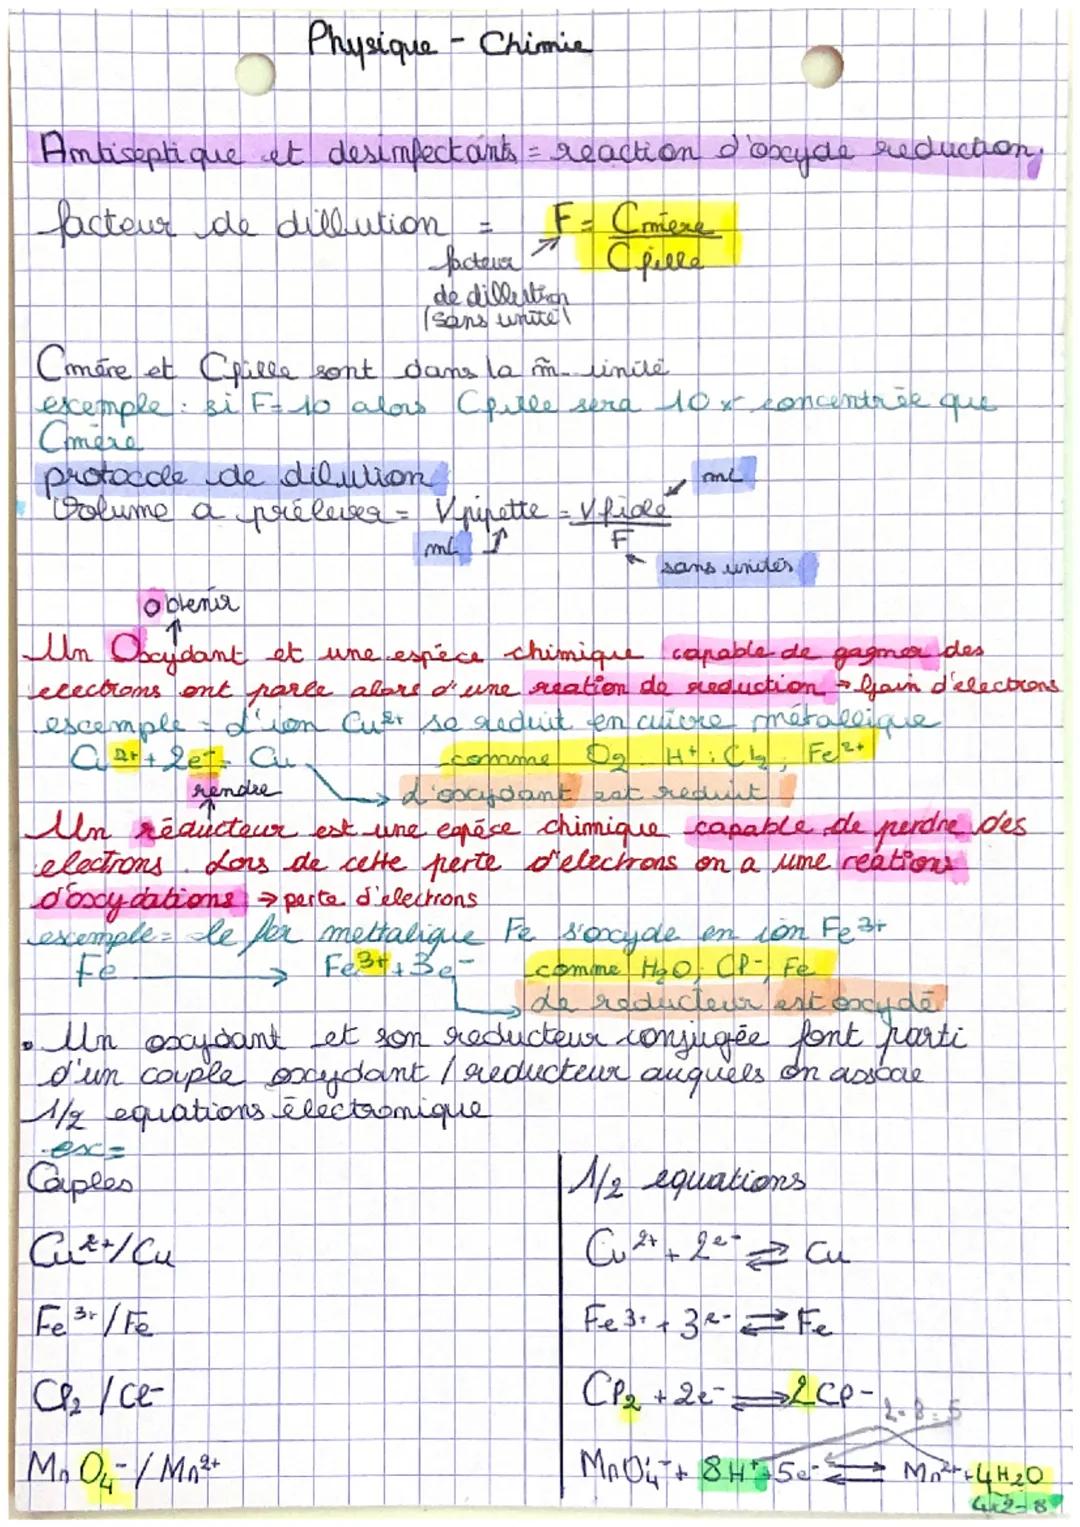 Physique - Chimie
Antiseptique et desinfectants = reaction d'oxyde reduction.
facteur de dillution = F = Cmère
Cfille
facteur
de dillution
(sans unité)
Cmère et Cfille sont dans la m̃ unité
exemple : si F=10 alors Cfille sera 10x concentrée que
Cmère
protocole de dilution
mL
Volume a prélever = Vpipette = Vfiole
F
mL
sans unités
Obtenir
Un Oxydant et une espèce chimique capable de gagner des
electrons ont parle alors d'une reation de reduction → Gain d'electrons
exemple = d'ion Cu2+ se reduit en cuivre métallique
Cu 2+ + 2e- = Cu comme O2 H+ ; Cl2 , Fe2+
rendre
d'oxydant est reduit
Un réducteur est une espéce chimique capable de perdre des
electrons. Lors de cette perte d'electrons on a une reations
d'oxydations → perte d'electrons
exemple = le fer mettalique Fe s'oxyde en ion Fe3+
Fe → Fe3+ + 3e- comme H2O, Cl-, Fe
le reducteur est oxydé
• Un oxydant et son reducteur conjugée font parti
d'un couple oxydant / reducteur auquels on associe
1/2 equations électronique
ex =
Couples 1/2 equations
Cu2+/Cu Cu2+ + 2e- ⇌ Cu
Fe3+/Fe Fe3+ + 3e- ⇌ Fe
Cl2 / Cl- Cl2 + 2e- ⇌ 2Cl-
2-8=5
MnO4- / Mn2+ MnO4- + 8H+ + 5e- ⇌ Mn2+ + 4H2O
4x2=8